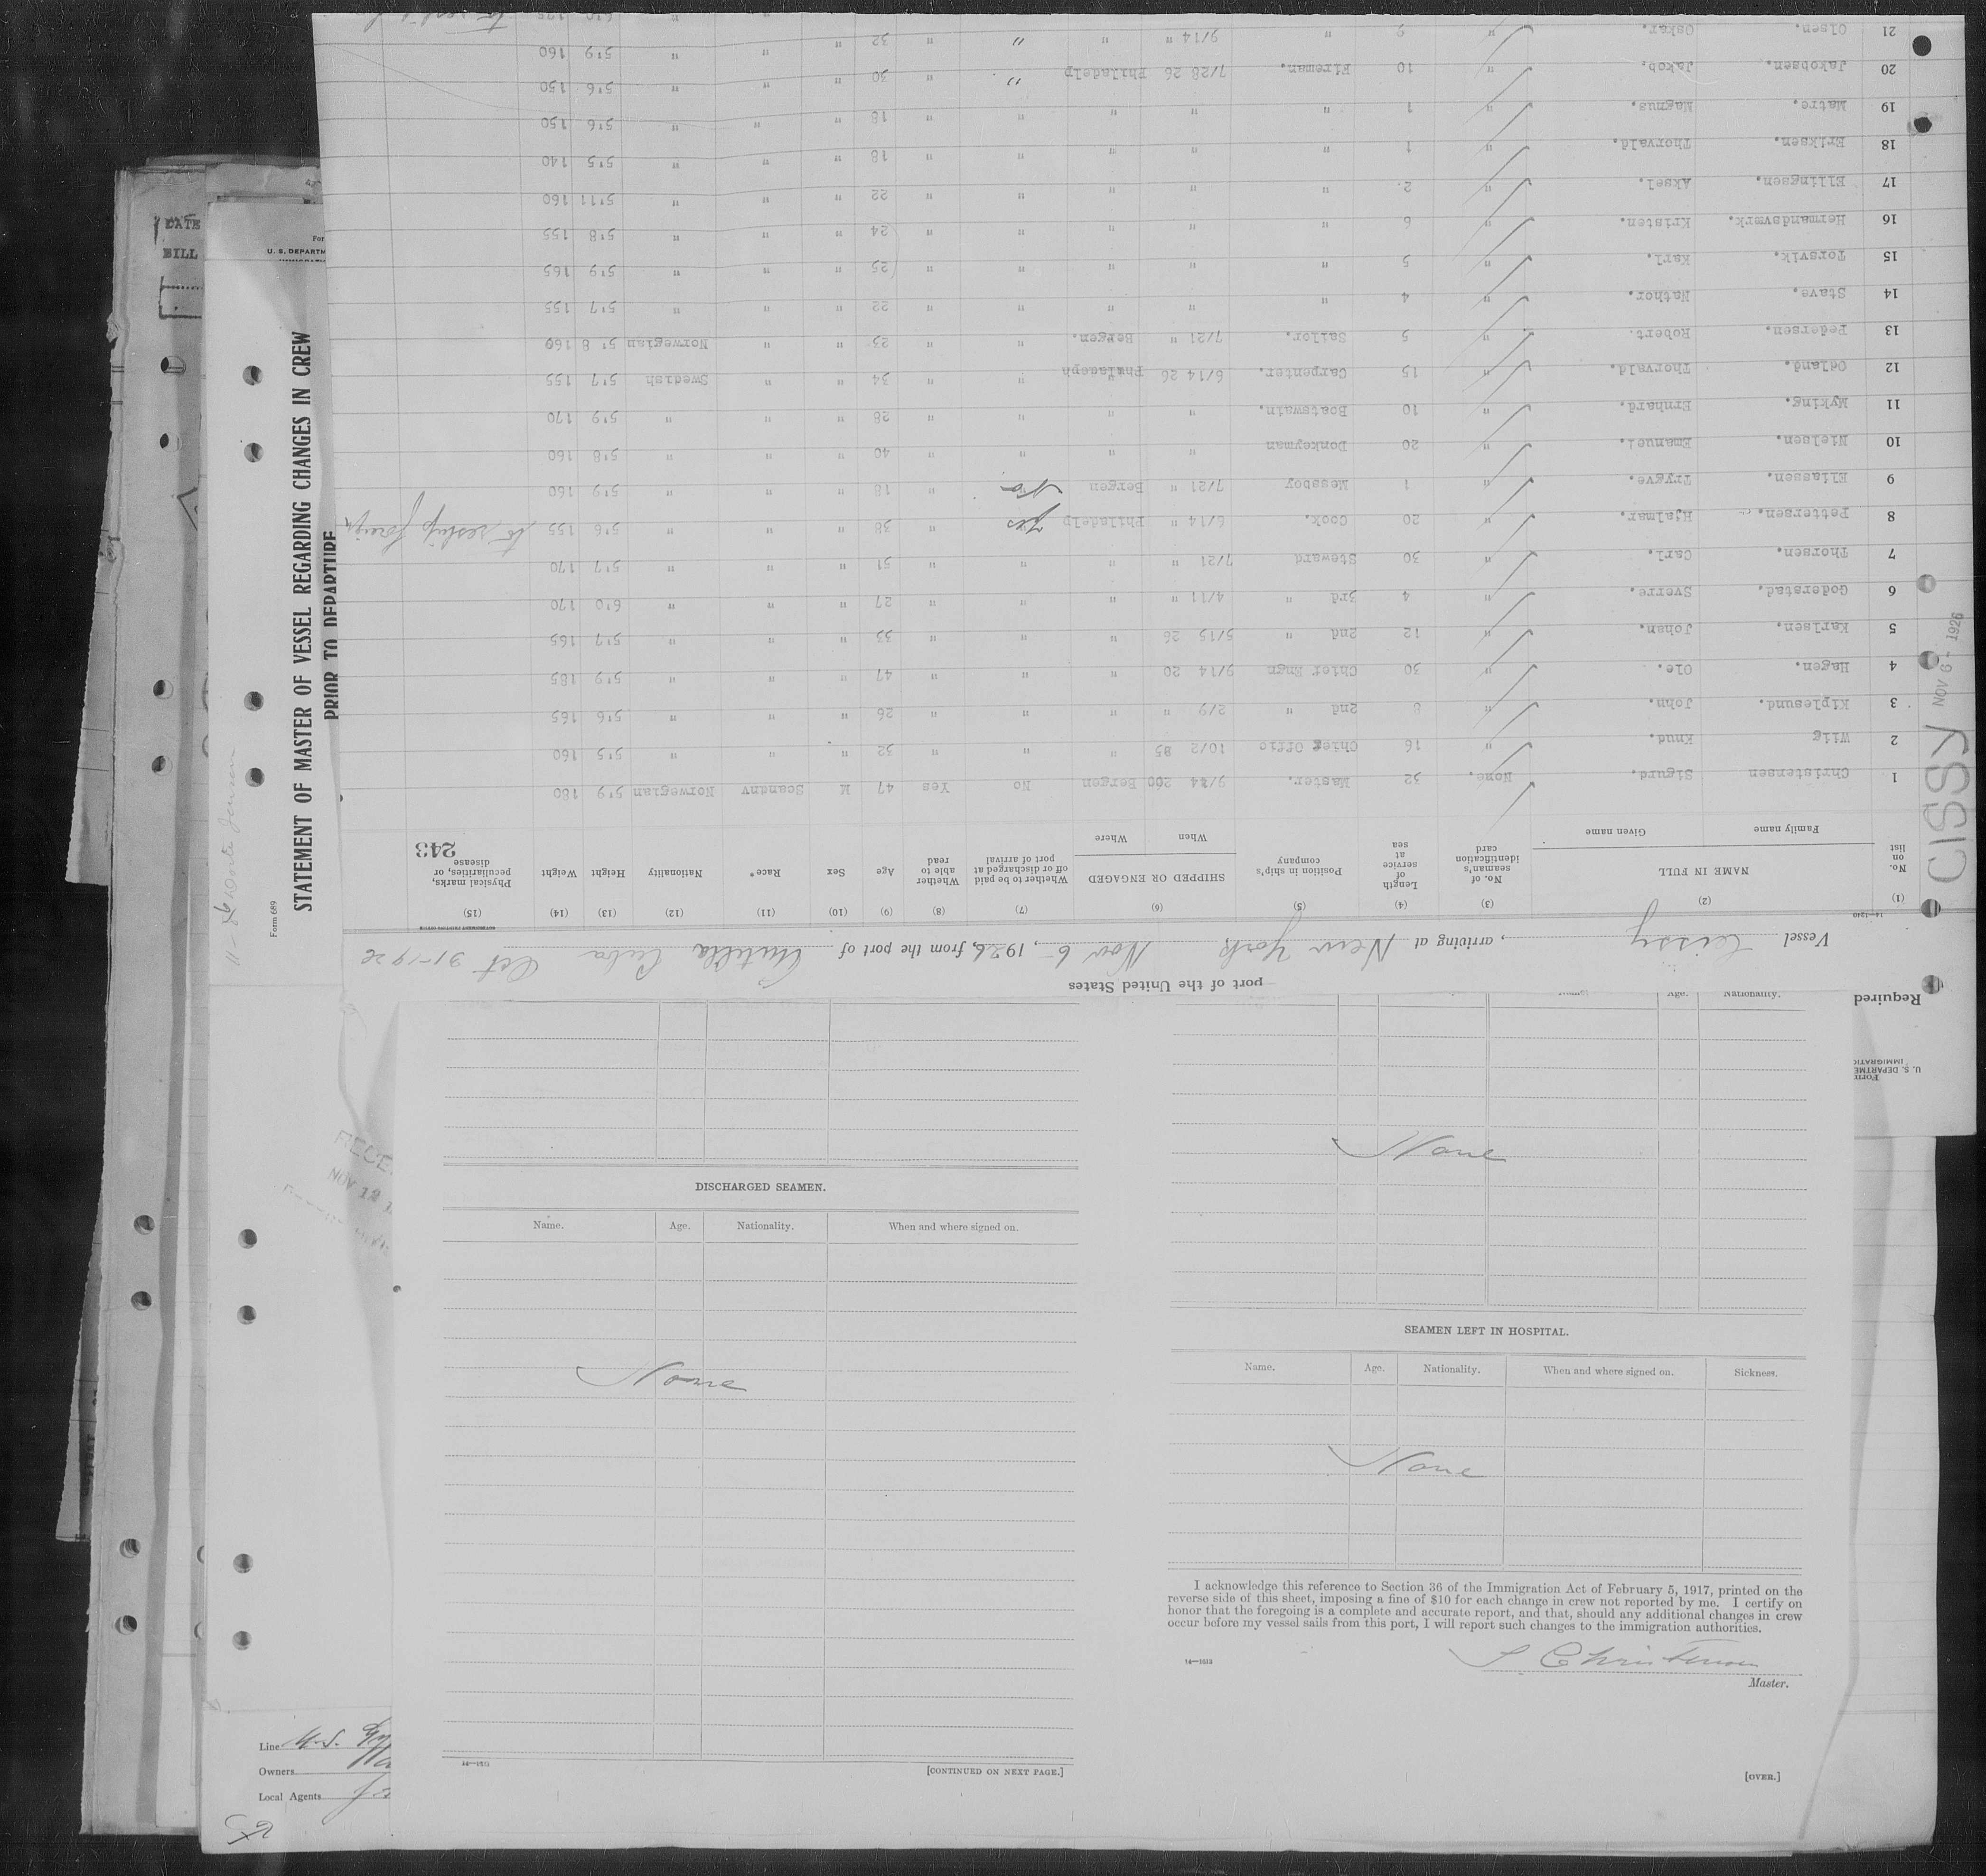 Required
port of the United States
Vessel Cissy, arriving at New York Nov 6-, 1926, from the port of Antilla Cuba Oct 31-1926
(1) (2) (3) (4) (5) (6) (7) (8) (9) (10) (11) (12) (13) (14) (15)
No. on list NAME IN FULL Family name Given name No. of seaman's identification card Length of service at sea Position in ship's company SHIPPED OR ENGAGED When Where Whether to be paid off or discharged at port of arrival Whether able to read Age Sex Race* Nationality Height Weight Physical marks, peculiarities, or disease
243
1 Christensen Sigurd. None. 32 Master. Bergen No Yes 47 M Scandnv Norwegian 5'9 180
2 Wiig Knud. " 16 Chief Offic 10/2 " " " 32 " " " 5'5 160
3 Kiplesund. John. " 8 2nd " 2/9 " " " " 26 " " " 5'6 165
4 Hagen. Ole. " 30 Chief Engn 9/14 20 " " " 47 " " " 5'9 185
5 Karlsen. Johan. " 12 2nd " 5/15 26 " " " 33 " " " 5'7 165
6 Goderstad. Sverre. " 4 3rd " 4/11 " " " " 27 " " " 6'0 170
7 Thorsen. Carl. " 30 Steward 7/21 " " " " 51 " " " 5'7 170
8 Pettersen. Hjalmar. " 20 Cook. 6/14 " Philadelp yes " 38 " " " 5'6 155 to reship foreign
9 Eliassen. Trygve. " 1 Messboy 7/21 " Bergen No " 18 " " " 5'9 160
10 Nielsen. Emanuel. " 20 Donkeyman " " " " 40 " " " 5'8 160
11 Myking. Ernhard. " 10 Boatswain. " " " " 28 " " " 5'9 170
12 Odland. Thorvald. " 15 Carpenter. 6/14 26 Phaladeph " " 34 " " Swedish 5'7 155
13 Pedersen. Robert. " 5 Sailor. 7/21 " Bergen. " " 23 " " Norwegian 5' 8 160
14 Stave. Nathor. " 4 " " " " " 22 " " " 5'7 155
15 Torsvik. Karl. " 5 " " " " " 25 " " " 5'9 165
16 Hermandsværk. Kristen. " 6 " " " " " 24 " " " 5'8 155
17 Ellingsen. Aksel. " 2. " " " " " 22 " " " 5'11 160
18 Eriksen. Thorvald. " 1 " " " " " 18 " " " 5'5 140
19 Matre. Magnus. " 1 " " " " " 18 " " " 5'6 150
20 Jakobsen. Jakob. " 10 Fireman. 7/28 26 Philadelp " " 30 " " " 5'6 150
21 Olsen. Oskar. " 9 " 9/14 " " " " 32 " " " 5'9 160
CISSY
NOV 6 - 1926
DATE
BILL
STATEMENT OF MASTER OF VESSEL REGARDING CHANGES IN CREW
PRIOR TO DEPARTURE
Form 689
NOV 12
DISCHARGED SEAMEN.
Name. Age. Nationality. When and where signed on.
None
14—1513
[CONTINUED ON NEXT PAGE.]
Age. Nationality.
None
SEAMEN LEFT IN HOSPITAL.
Name. Age. Nationality. When and where signed on. Sickness.
None
I acknowledge this reference to Section 36 of the Immigration Act of February 5, 1917, printed on the
reverse side of this sheet, imposing a fine of $10 for each change in crew not reported by me. I certify on
honor that the foregoing is a complete and accurate report, and that, should any additional changes in crew
occur before my vessel sails from this port, I will report such changes to the immigration authorities.
S Christensen
Master.
14—1513
[OVER.]
Line
Owners
Local Agents